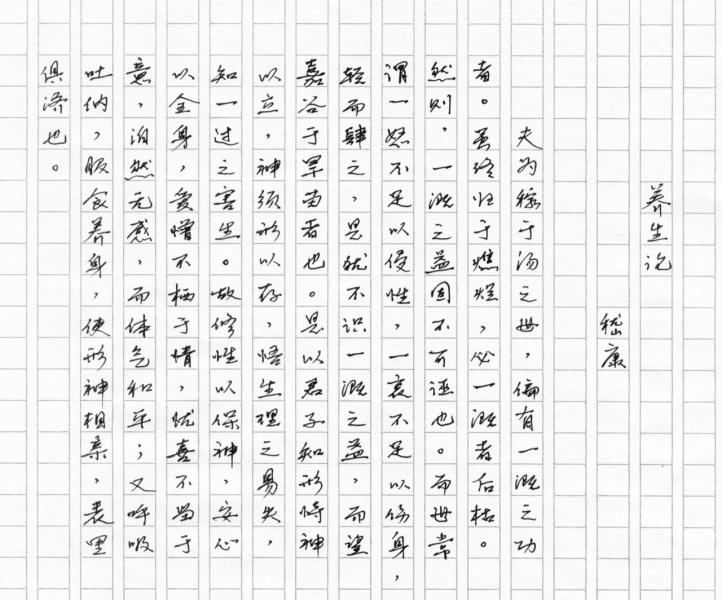 养生论
嵇康
夫为稼于汤之世，偏有一溉之功
者。虽终归于燋烂，必一溉者后枯。
然则，一溉之益固不可诬也。而世常
谓一怒不足以侵性，一哀不足以伤身，
轻而肆之，是犹不识一溉之益，而望
嘉谷于旱苗者也。是以君子知形恃神
以立，神须形以存，悟生理之易失，
知一过之害生。故修性以保神，安心
以全身，爱憎不栖于情，忧喜不留于
意，泊然无感，而体气和平；又呼吸
吐纳，服食养身，使形神相亲，表里
俱济也。